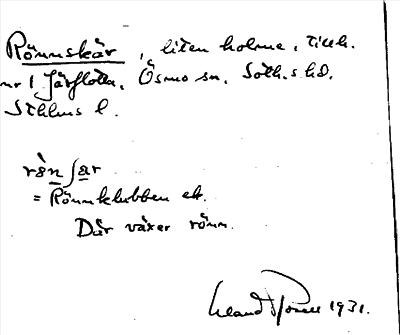 Rönnskär, liten holme, tillh.
nr 1 Järflotta, Ösmo sn, Soth.s hd.
Sthlms l.
rø̀nʃar
= Rönnklubben ek.
Där växer rönn.
1931.